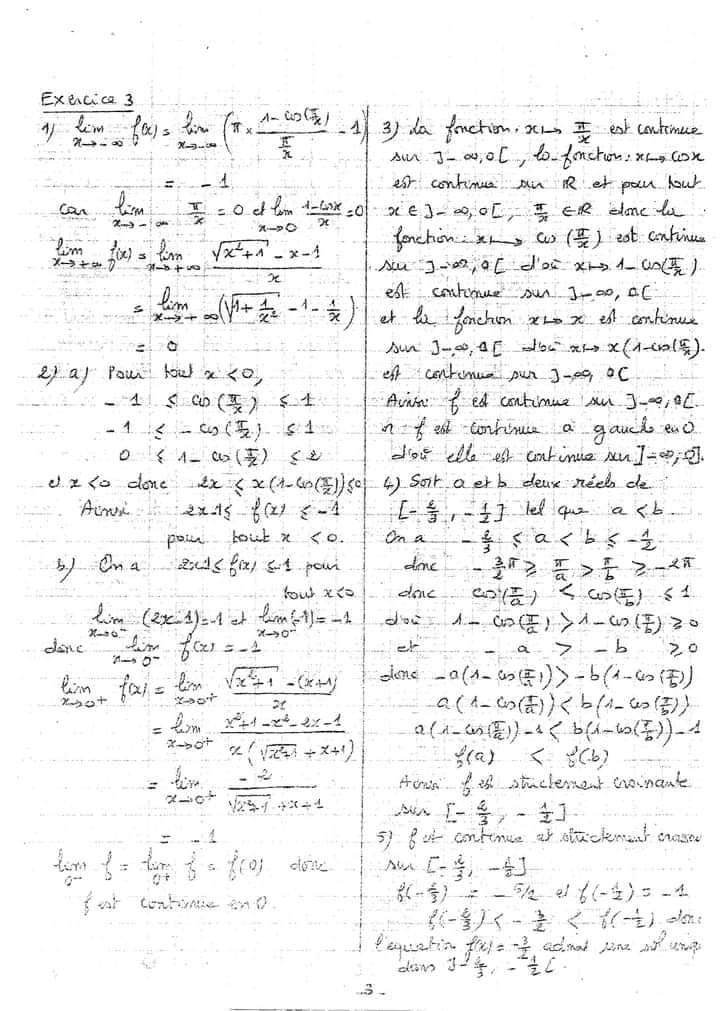 Exercice 3
1) lim_{x→-∞} f(x) = lim_{x→-∞} (π × (1-cos(π/x))/(π/x) - 1)
= -1
car lim_{x→-∞} π/x = 0 et lim_{x→0} (1-cosx)/x = 0
lim_{x→+∞} f(x) = lim_{x→+∞} (√(x²+1) - x - 1)/x
= lim_{x→+∞} (√(1+1/x²) - 1 - 1/x)
= 0
2) a) Pour tout x < 0,
-1 ≤ cos(π/x) ≤ 1
-1 ≤ -cos(π/x) ≤ 1
0 ≤ 1-cos(π/x) ≤ 2
et x<0 donc 2x ≤ x(1-cos(π/x)) ≤ 0
Ainsi 2x-1 ≤ f(x) ≤ -1
pour tout x < 0.
b) On a 2x-1 ≤ f(x) ≤ -1 pour
tout x<0
lim_{x→0⁻} (2x-1) = -1 et lim_{x→0⁻} (-1) = -1
donc lim_{x→0⁻} f(x) = -1
lim_{x→0⁺} f(x) = lim_{x→0⁺} (√(x²+1) - (x+1))/x
= lim_{x→0⁺} (x²+1-x²-2x-1)/(x(√(x²+1)+x+1))
= lim_{x→0⁺} -2/(√(x²+1)+x+1)
= -1
lim_{0⁻} f = lim_{0⁺} f = f(0) donc
f est continue en 0.
3) La fonction: x↦ π/x est continue
sur ]-∞,0[, la fonction: x↦ cosx
est continue sur ℝ et pour tout
x ∈ ]-∞,0[, π/x ∈ ℝ donc la
fonction: x↦ cos(π/x) est continue
sur ]-∞,0[ d'où x↦ 1-cos(π/x)
est continue sur ]-∞,0[
et la fonction x↦ x est continue
sur ]-∞,0[ d'où x↦ x(1-cos(π/x)).
est continue sur ]-∞,0[
Ainsi f est continue sur ]-∞,0[
f est continue à gauche en 0
d'où elle est continue sur ]-∞,0].
4) Soit a et b deux réels de
[-2/3, -1/2] tel que a < b.
On a -2/3 ≤ a < b ≤ -1/2
donc -3/2 π ≥ π/a > π/b ≥ -2π
donc cos(π/a) < cos(π/b) ≤ 1
d'où 1-cos(π/a) > 1-cos(π/b) ≥ 0
et -a > -b ≥ 0
donc -a(1-cos(π/a)) > -b(1-cos(π/b))
a(1-cos(π/a)) < b(1-cos(π/b))
a(1-cos(π/a))-1 < b(1-cos(π/b))-1
f(a) < f(b)
Ainsi f est strictement croissante
sur [-2/3, -1/2].
5) f est continue et strictement croissa
sur [-2/3, -1/2]
f(-2/3) = -5/2 et f(-1/2) = -1
f(-2/3) < -3/2 < f(-1/2) donc
l'equation f(x) = -3/2 admet une sol uniqu
dans ]-2/3, -1/2[.
-3-